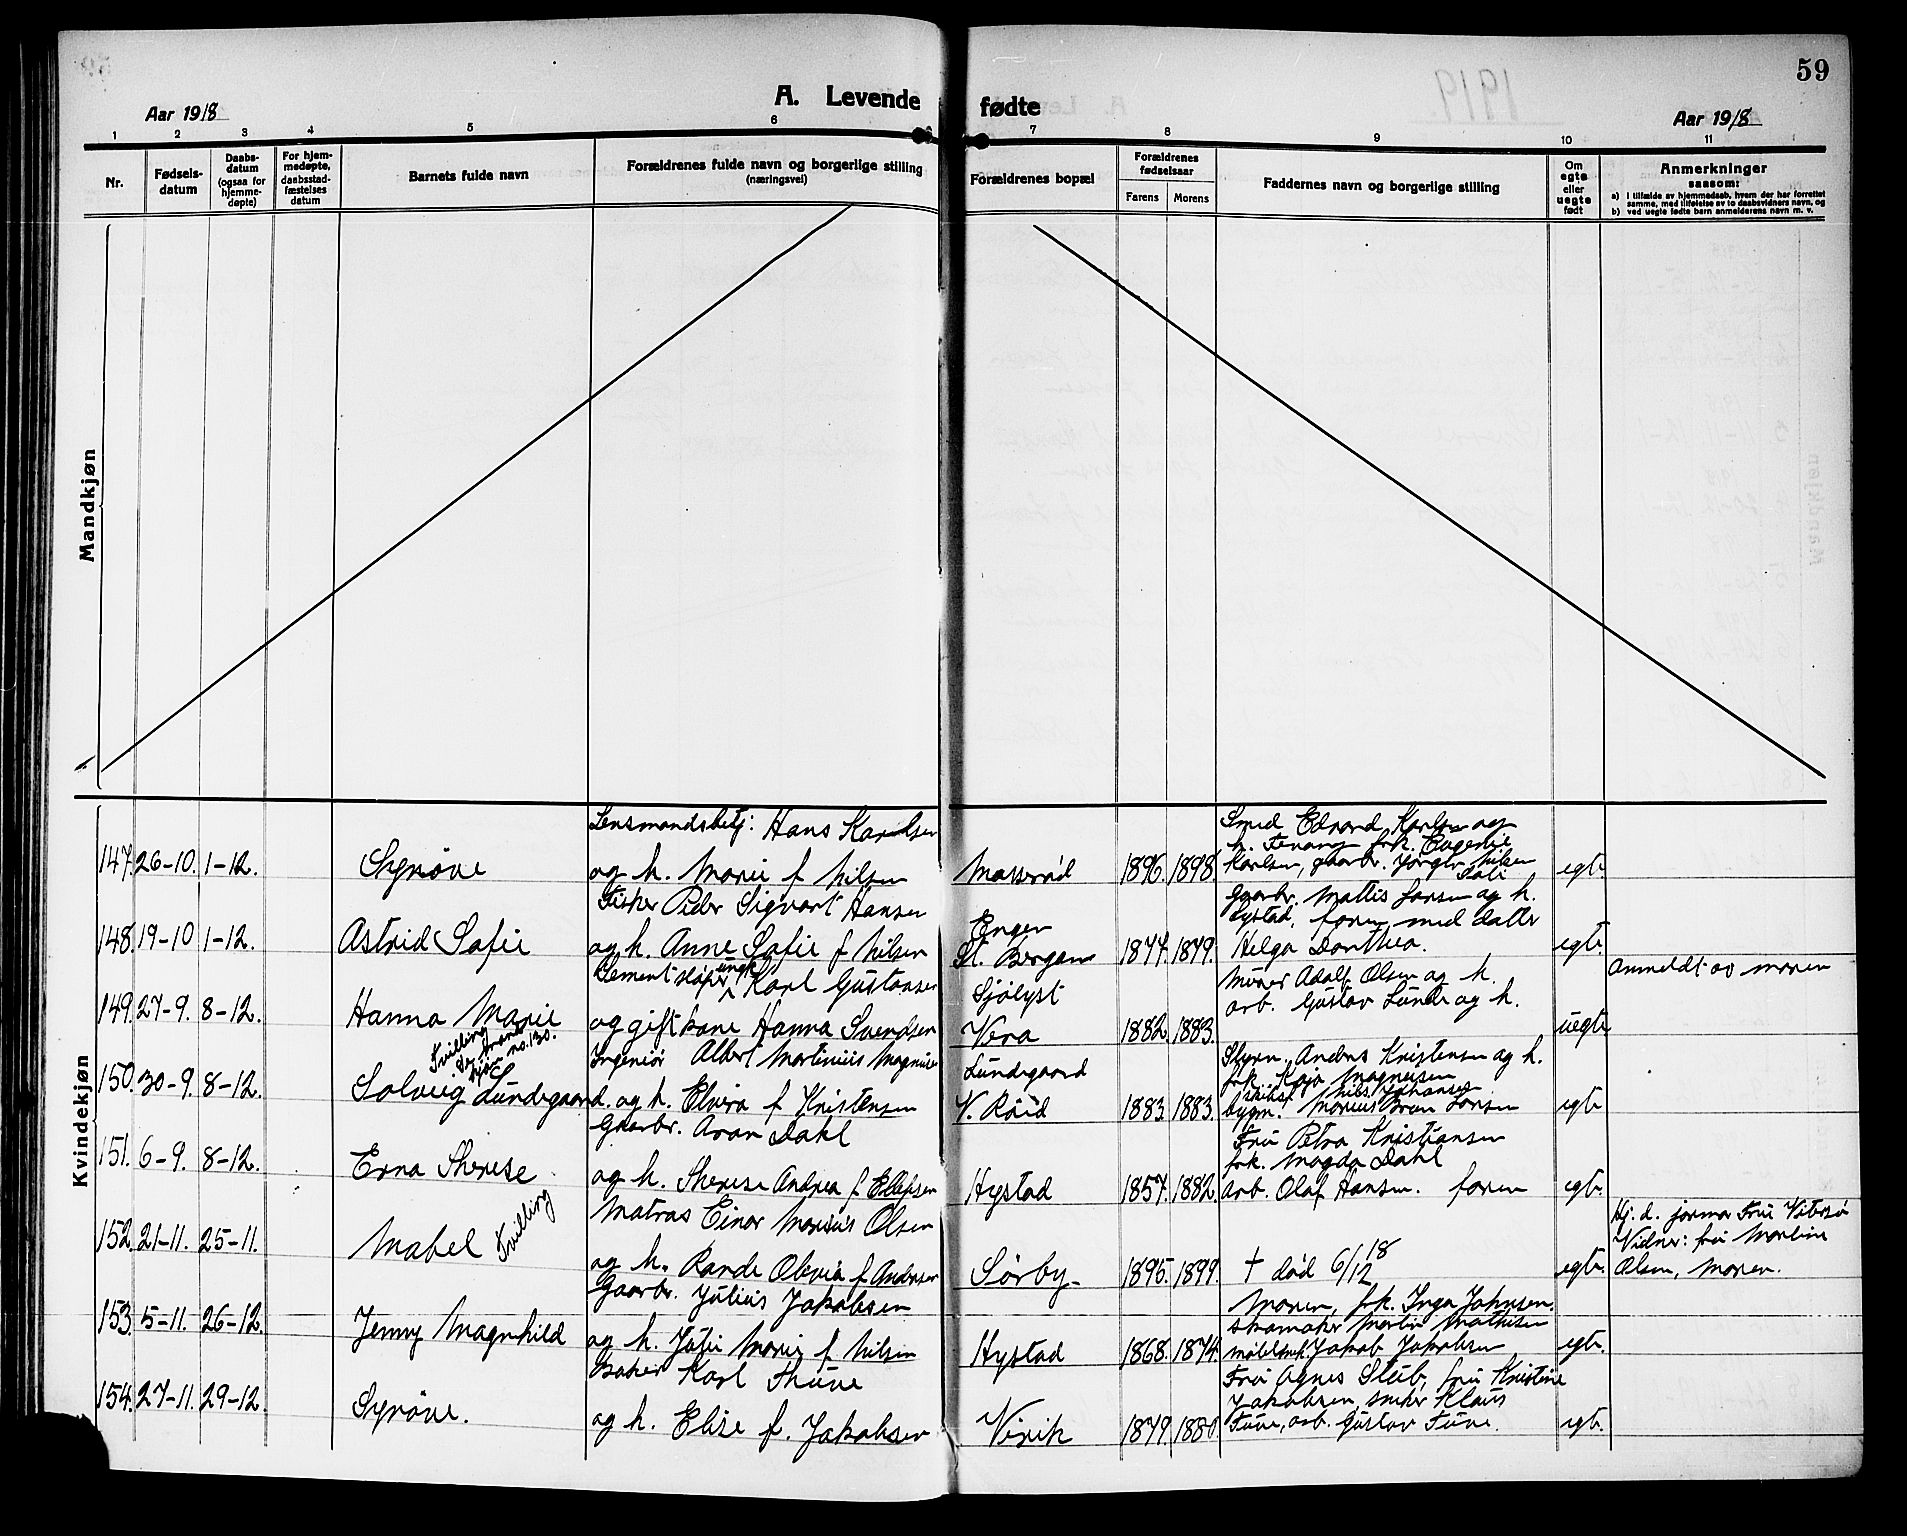 59
Aar 1918
A. Levende fødte
Aar 1918
1 2 3 4 5 6 7 8 9 10 11
Nr.
Fødsels-
datum
Daabs-
datum
(ogsaa for
hjemme-
døpte)
For hjem-
medøpte,
daabsstad-
fæstelses
datum
Barnets fulde navn
Forældrenes fulde navn og borgerlige stilling
(næringsvei)
Forældrenes bopæl
Forældrenes
fødselsaar
Farens Morens
Faddernes navn og borgerlige stilling
Om
egte
eller
uegte
født
Anmerkninger
saasom:
a) i tilfælde av hjemmedaab, hvem der har forrettet
samme, med tilføielse av to daabsvidners navn, og
b) ved uegte fødte barn anmelderens navn m. v.
Mandkjøn
Kvindekjøn
147. 26-10. 1-12.
Synøve
Lensmandsbetj: Hans Karlsen
og h. Marie f Nilsen
Masserød
1896. 1898.
Smed Edvard Karlsen og
h. frk. Eugenie
Karlsen, gaarbr. Nilsen
egte.
148. 19-10 1-12.
Astrid Sofie
Fisker Peder Sigvart Hansen
og h. Anne Sofie f Nilsen
Engen
St. Bergan
1877. 1879.
Gaarbr. Mattis Larsen og h.
Hystad, foren med datter
Helga Dorthea.
egte.
149. 27-9. 8-12.
Hanna Marie
Cementstøper ungk Karl Gustavsen
og gift kone Hanna Svendsen
Sjølyst
Vera
1882. 1883.
Murer Adolf Olsen og h.
arb. Gustav Lunde og h.
uegte
Anmeldt av moren
150. 30-9. 8-12.
Tvilling
Se mand
kjøn no. 130.
Solveig Lundegaard.
Ingeniør Albert Martinius Magnusen
og h. Elvira f Kristensen
Lundegaard
V. Røid
1883. 1883.
Styrm. Anders Kristensen og h.
frk. Kaja Magnusen
skibsf. Nils Johansen
bygm. Marius Bruu Larsen
egte
151. 6-9. 8-12.
Erna Therese
Gaarbr. Aron Dahl
og h. Therese Andrea f Ellefsen
Hystad
1857. 1882.
Fru Petra Kristiansen
frk. Magda Dahl
arb. Olaf Hansen. foren
egte.
152. 21-11. 25-11.
Mabel Tvilling
Matros Einar Marius Olsen
og h. Randi Olevia f Andersen
Sørby
1895. 1899.
† død 6/12 18
egte.
Hj. d. jormor Fru Vibesø
Vidner: fru Martine
Olsen, moren.
153. 5-11. 26-12.
Jenny Magnhild
Gaarbr. Julius Jakobsen
og h. Julie Marie f Nilsen
Hystad
1868. 1874.
Moren, frk. Inga Johnsen.
skomaker Martin Mathisen
Jakob Jakobsen
egte.
154. 27-11. 29-12.
Synøve.
Baker Karl Thune
og h. Elise f. Jakobsen
Virik
1879. 1880
Fru Agnes Stub, fru Kristine
Jakobsen, snekr Klaus
Tune, arb. Gustav Tune.
egte.